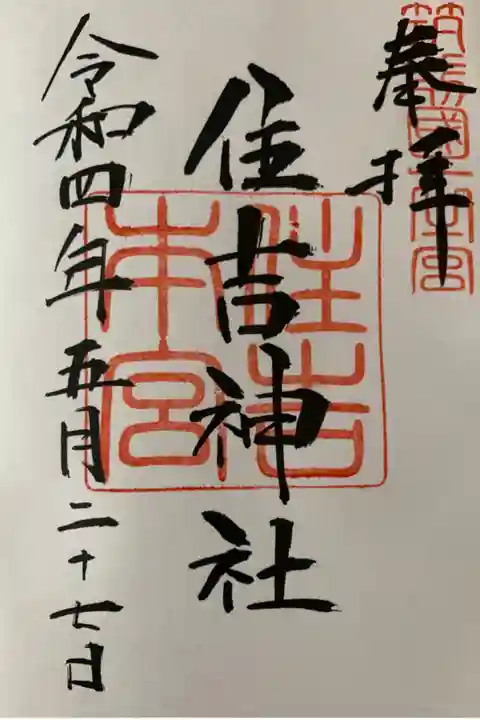 奉拝
筑前國一之宮
住吉神社
住吉本宮
令和四年五月二十七日